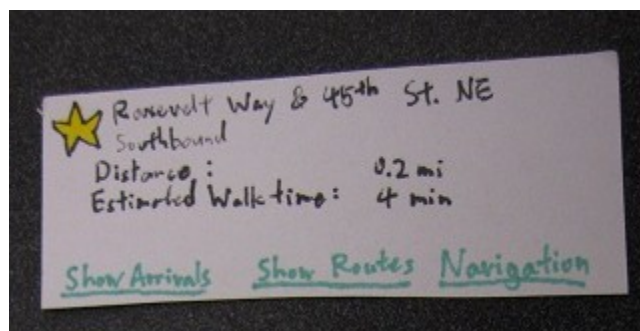 Roosevelt Way & 45th St. NE
Southbound
Distance: 0.2 mi
Estimated Walk time: 4 min
Show Arrivals Show Routes Navigation